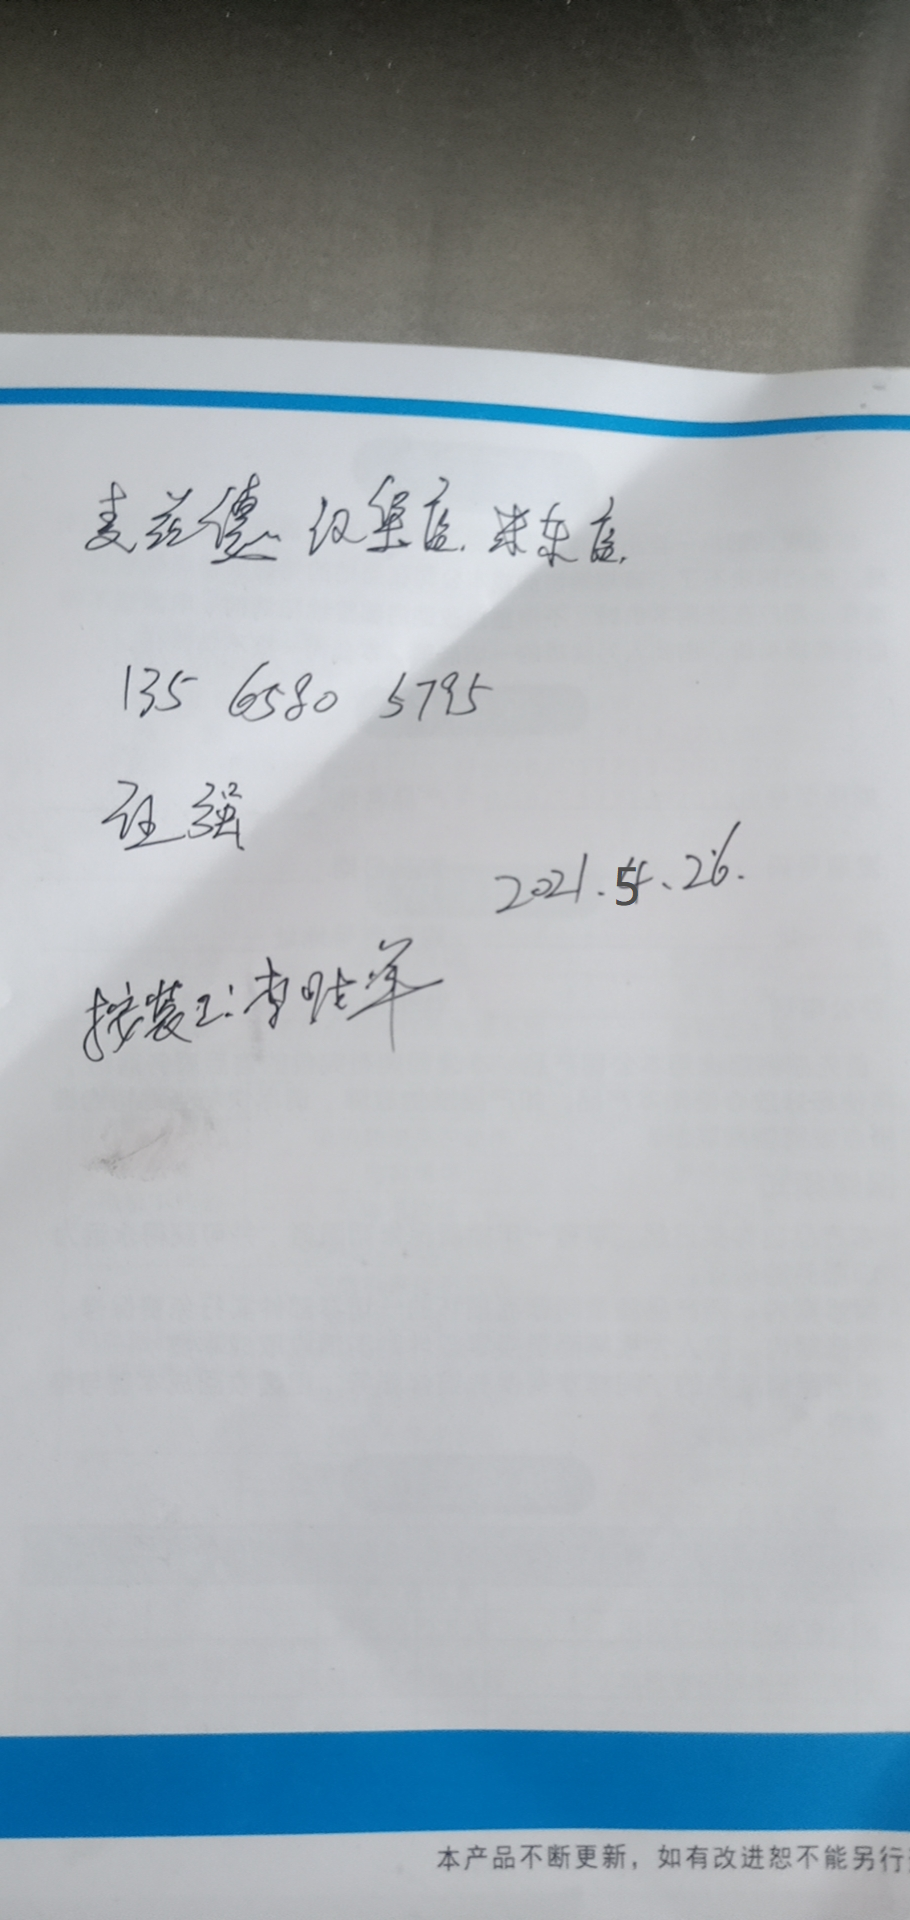 麦兹德 汉堡店. 米东店.
135 6580 5795
汪强
2021.5.26.
按装工:李
本产品不断更新，如有改进恕不能另行